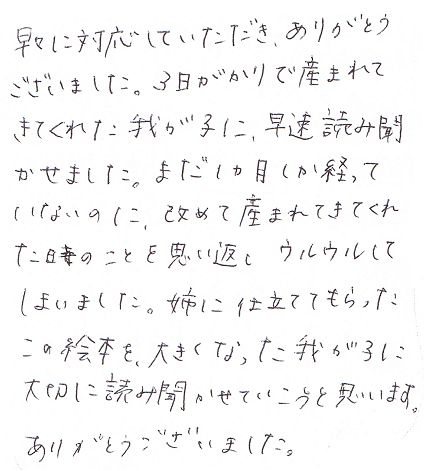 早々に対応していただき、ありがとう
ございました。3日がかりで産まれて
きてくれた我が子に、早速読み聞
かせました。まだ1ヵ月しか経って
いないのに、改めて産まれてきてくれ
た時のことを思い返し ウルウルして
しまいました。姉に仕立ててもらった
この絵本を、大きくなった我が子に
大切に読み聞かせていこうと思います。
ありがとうございました。